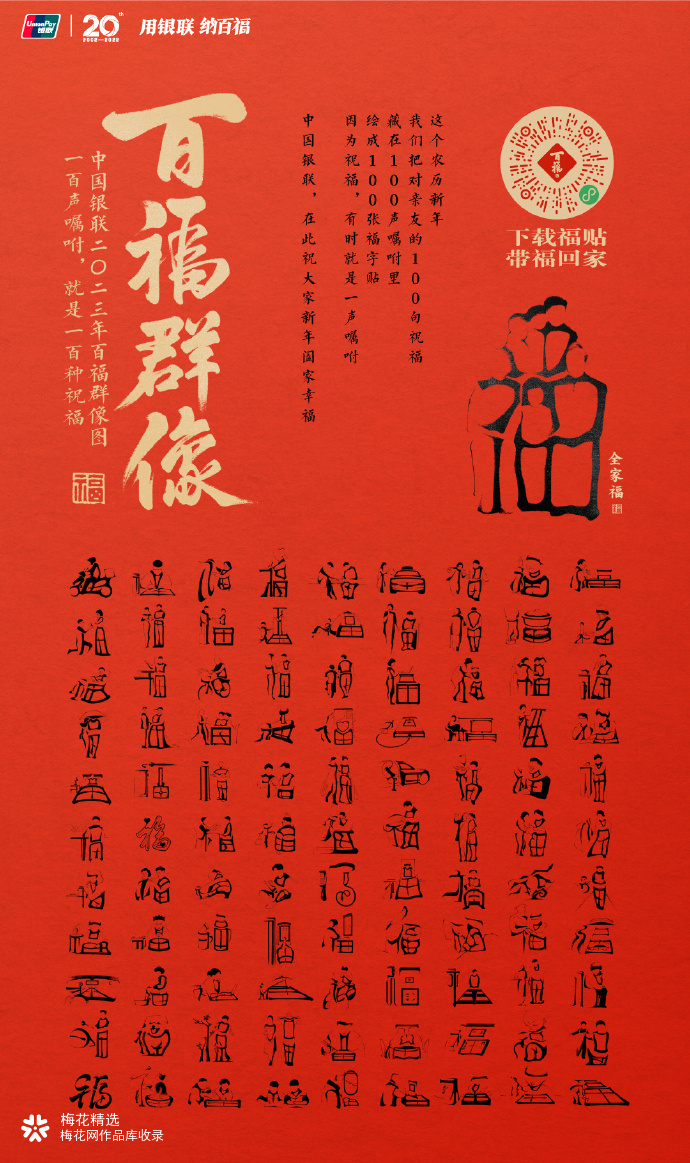 UnionPay
银联
20th
2002—2022
用银联 纳百福
百福群像
中国银联二〇二三年百福群像图
一百声嘱咐，就是一百种祝福
福
这个农历新年
我们把对亲友的100句祝福
藏在100声嘱咐里
绘成100张福字贴
因为祝福，有时就是一声嘱咐
中国银联，在此祝大家新年阖家幸福
百福
下载福贴
带福回家
福
全家福
梅花精选
梅花网作品库收录